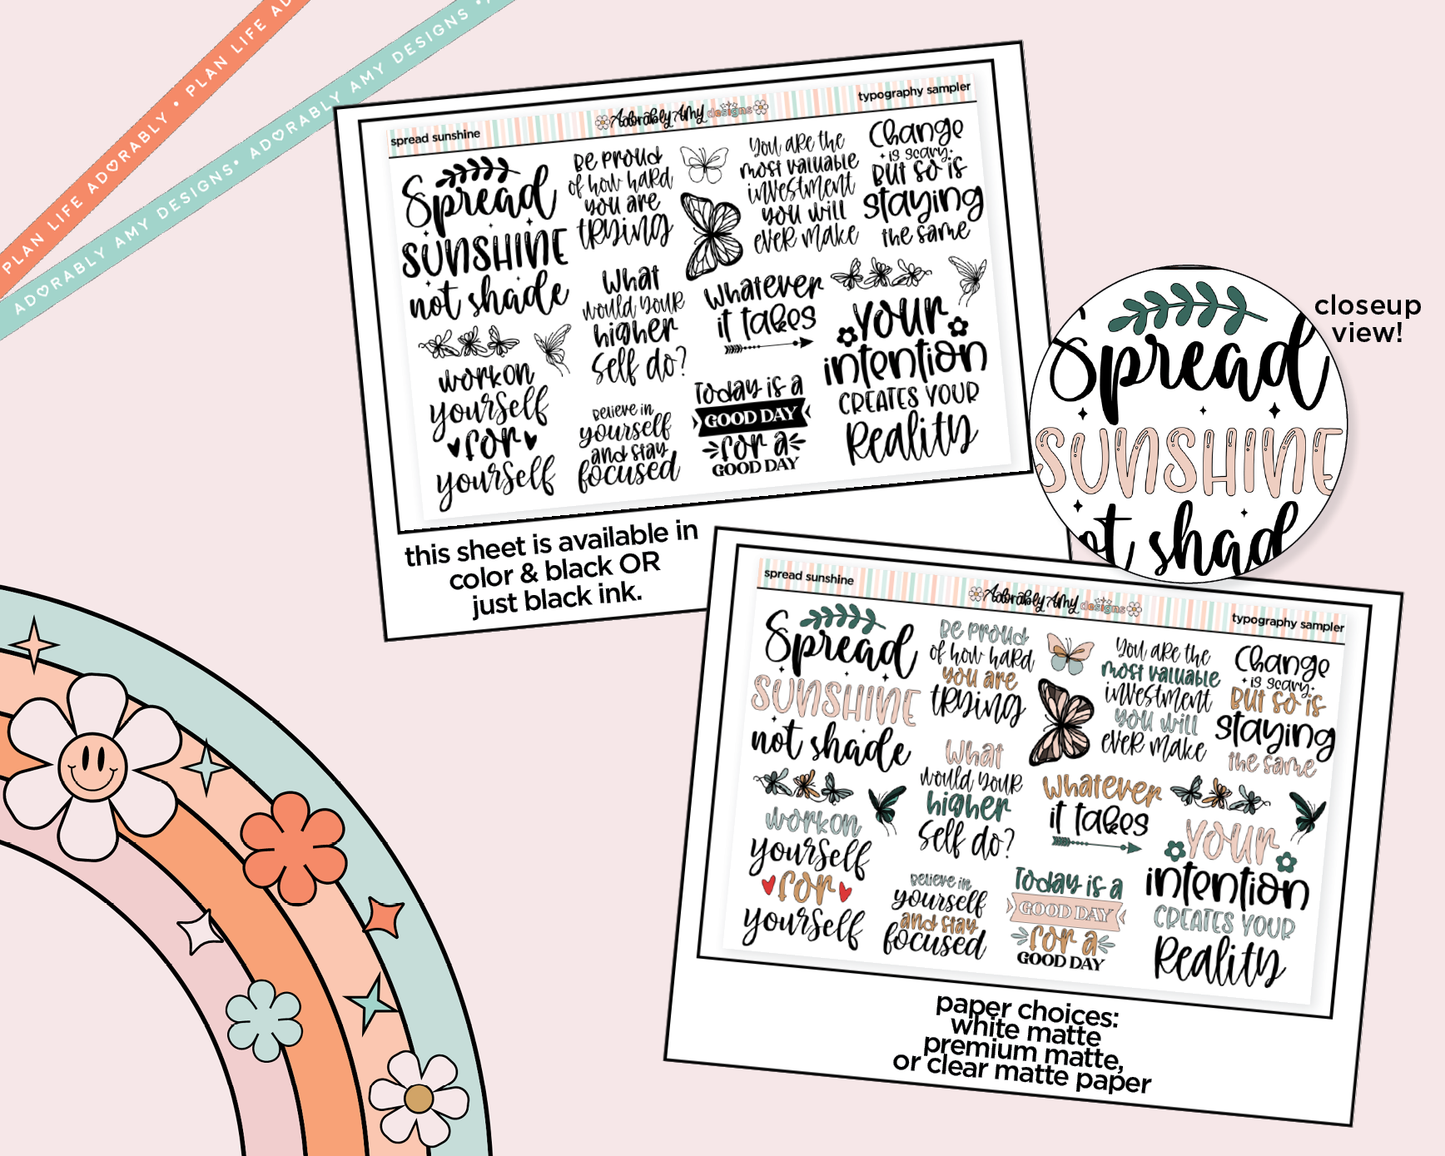 PLAN LIFE ADORABLY • PLAN LIFE AD
ADORABLY AMY DESIGNS • ADORABLY AMY DESIGNS •
spread sunshine
Adorably Amy designs
typography sampler
Spread
SUNSHINE
not shade
work on
yourself
for
yourself
Be proud
of how hard
you are
trying
What
would your
higher
self do?
Believe in
yourself
and stay
focused
You are the
most valuable
investment
you will
ever make
Whatever
it takes
Today is a
GOOD DAY
for a
GOOD DAY
Change
• is scary •
But so is
staying
the same
Your
intention
CREATES YOUR
Reality
this sheet is available in
color & black OR
just black ink.
closeup
view!
Spread
SUNSHINE
ot shad
spread sunshine
Adorably Amy designs
typography sampler
Spread
SUNSHINE
not shade
work on
yourself
for
yourself
Be proud
of how hard
you are
trying
What
would your
higher
self do?
Believe in
yourself
and stay
focused
You are the
most valuable
investment
you will
ever make
Whatever
it takes
Today is a
GOOD DAY
for a
GOOD DAY
Change
• is scary •
But so is
staying
the same
Your
intention
CREATES YOUR
Reality
paper choices:
white matte
premium matte,
or clear matte paper